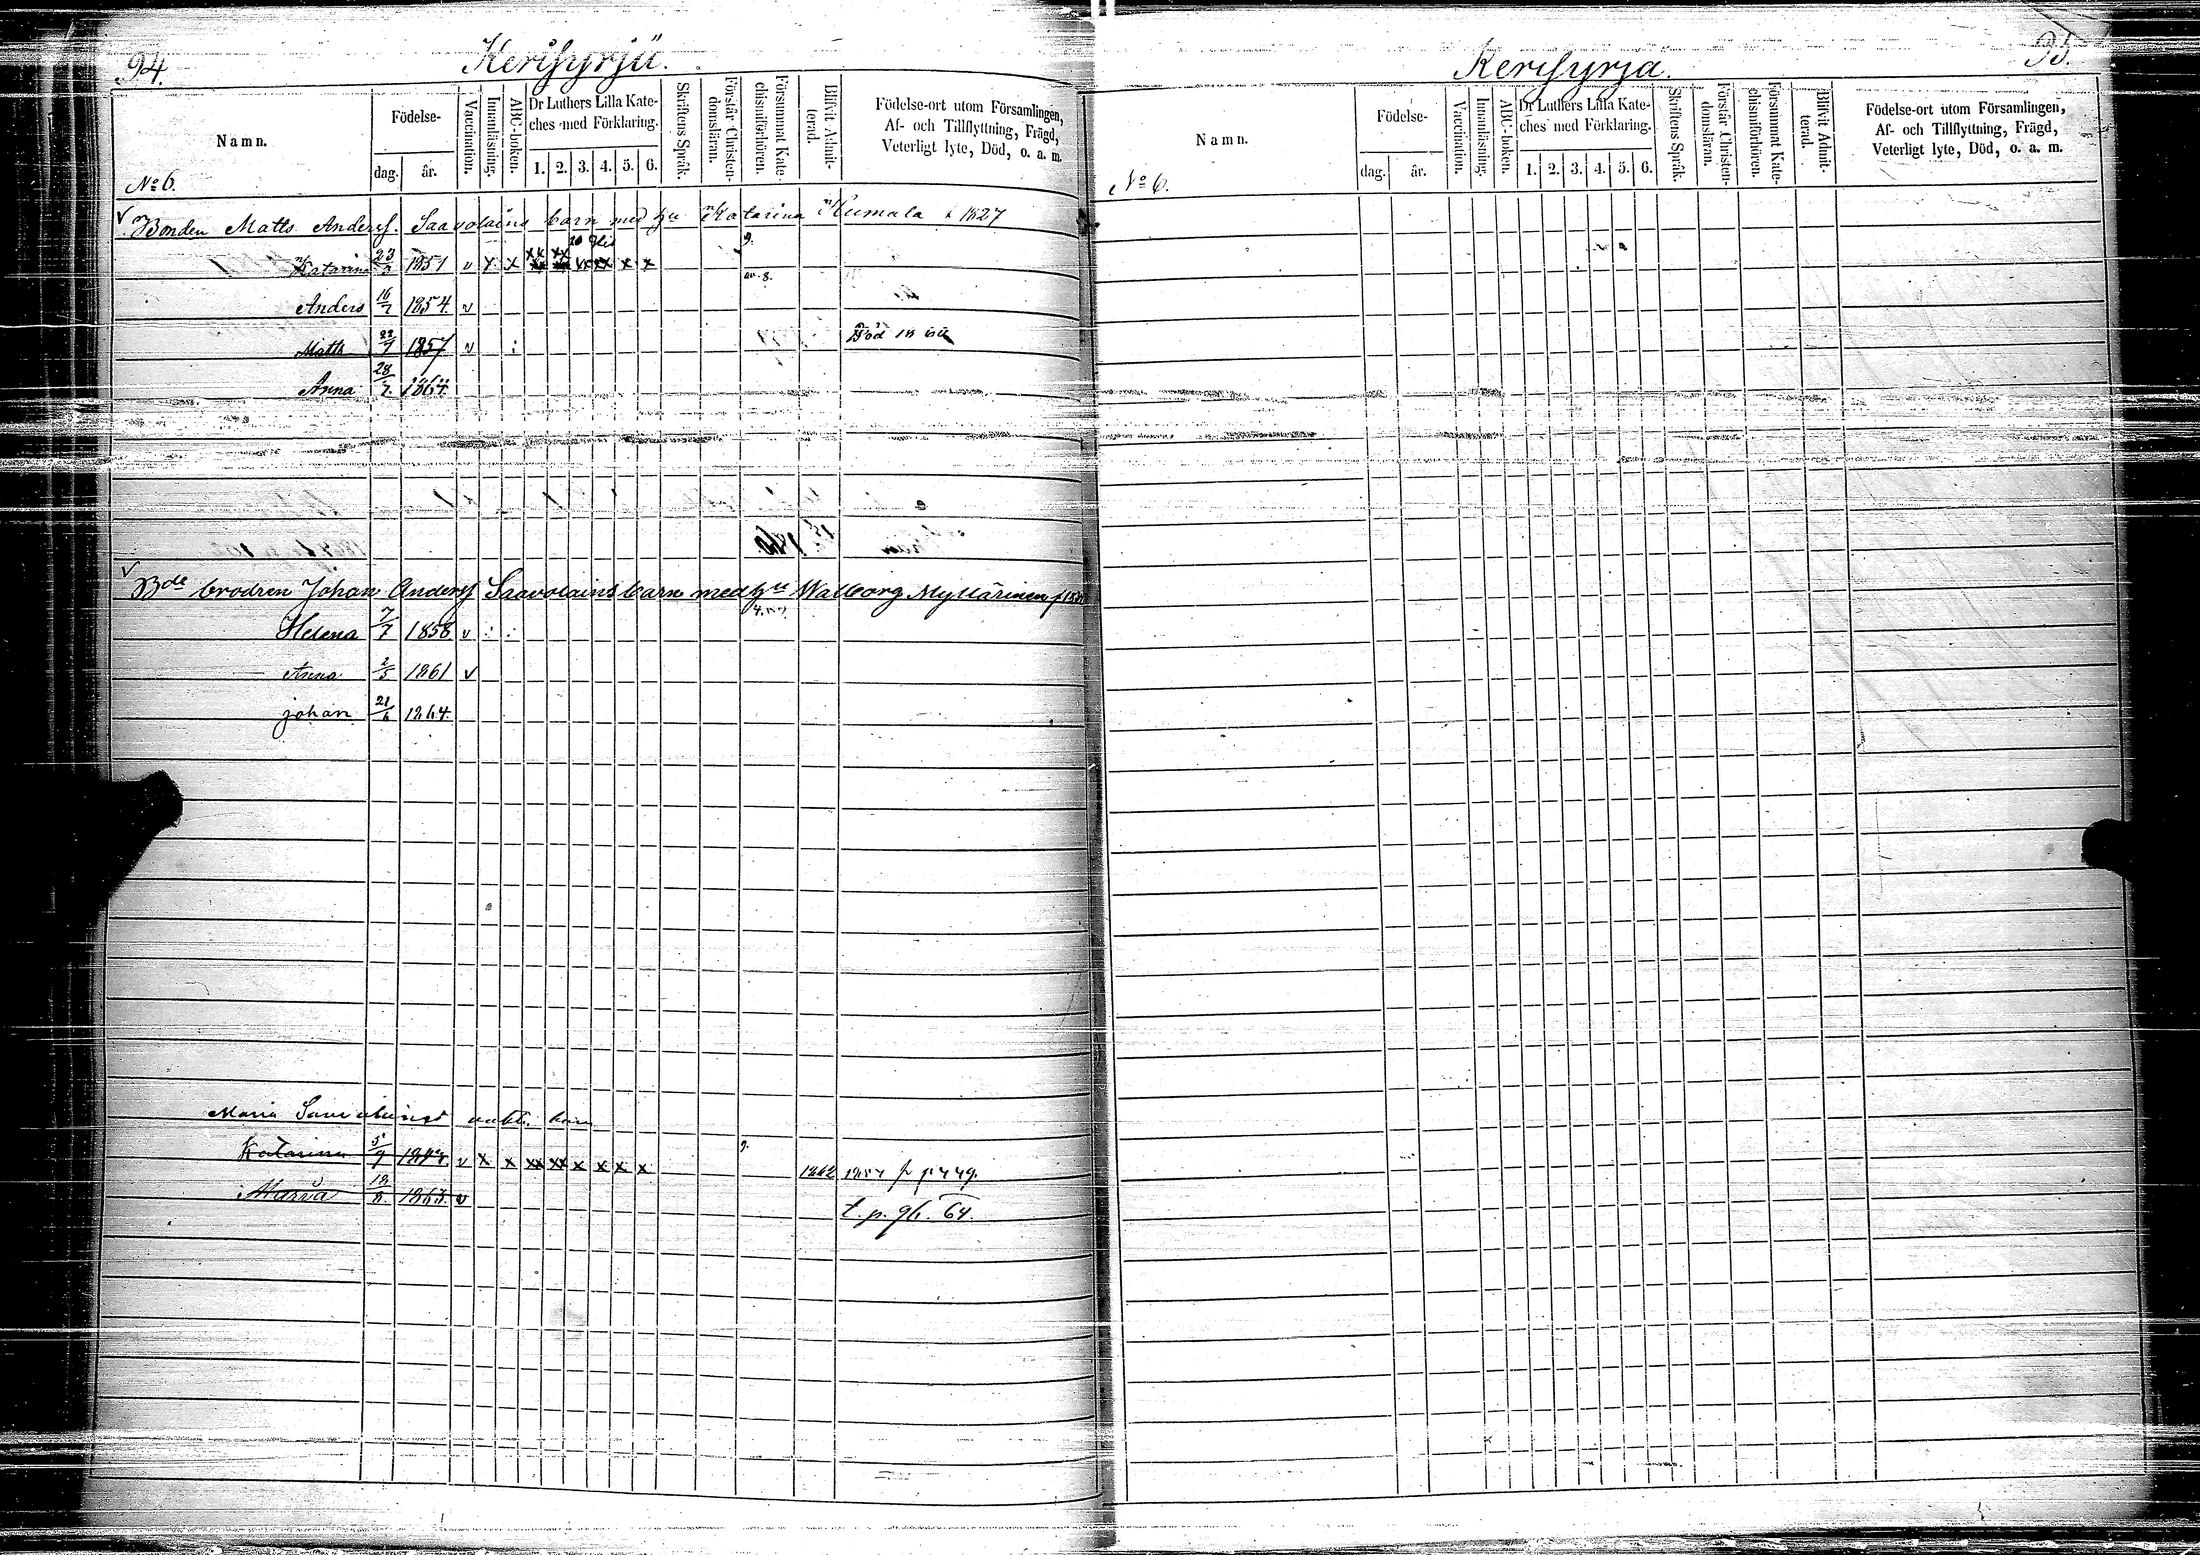 94.
Kerisyrjä.
Namn.
Födelse-
dag.
år.
Vaccination.
Innanläsning.
ABC-boken.
Dr Luthers Lilla Kate-
ches med Förklaring.
1. 2. 3. 4. 5. 6.
Skriftens Språk.
Förstår Christen-
domsläran.
Försummat Kate-
chismiförhören.
Blifvit Admit-
terad.
Födelse-ort utom Församlingen,
Af- och Tillflyttning, Frägd,
Veterligt lyte, Död, o. a. m.
No 6.
Bonden Matts Andersf. Saavolains barn med hu Katarina Kumala 1827
Katarina 23/3 1851 v x x xx xx x x
Anders 16/7 1854. v
Matts 22/7 1857 v Död
Anna 28/7. 1864.
Bde brodren Johan Andersf Saavolains barn med hu Walborg Myllärinen
Helena 7/7 1858 v
Anna 2/5 1861 v
Johan 21/6 1864.
Maria barn
Katarina 5/7 v x x xx xx x x x x 1862 p 449.
Maria 18/8. 1863. v t. p. 96. 64.
95.
Kerisyrjä.
Namn.
Födelse-
dag.
år.
Vaccination.
Innanläsning.
ABC-boken.
Dr Luthers Lilla Kate-
ches med Förklaring.
1. 2. 3. 4. 5. 6.
Skriftens Språk.
Förstår Christen-
domsläran.
Försummat Kate-
chismiförhören.
Blifvit Admit-
terad.
Födelse-ort utom Församlingen,
Af- och Tillflyttning, Frägd,
Veterligt lyte, Död, o. a. m.
No 6.